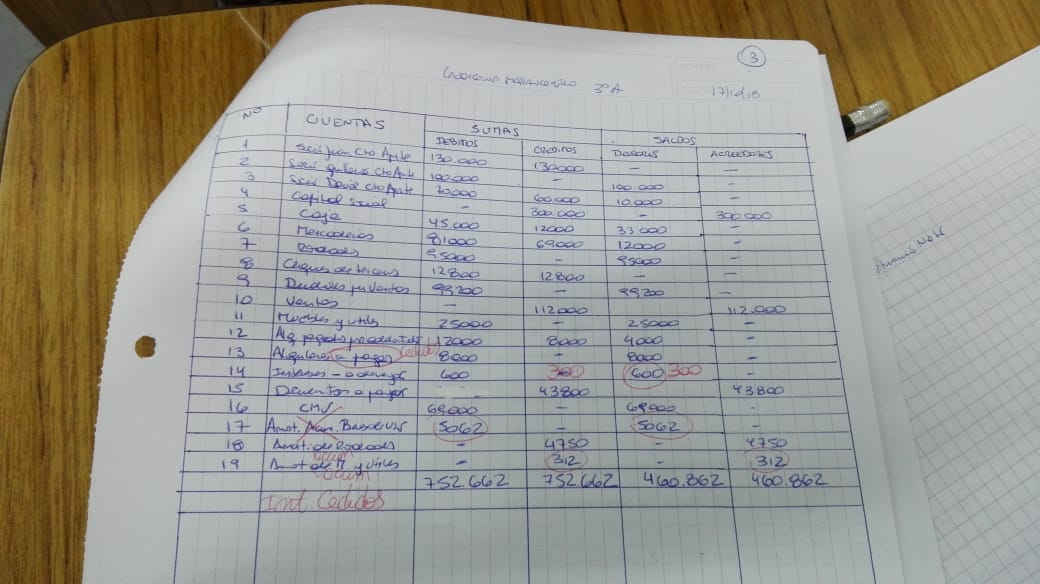 3
3º A 17/10/18
Nº CUENTAS SUMAS SALDOS
DEBITOS CREDITOS DEUDORES ACREEDORES
1 Socio Juan Cto Aporte 130.000 130000 — —
2 Socio Guillermo Cto Aporte 100.000 - 100.000 -
3 Socio David Cto Aporte 70000 60000 10.000 -
4 Capital Social - 300.000 - 300.000
5 Caja 45.000 12000 33000 -
6 Mercaderias 81000 69000 12000 -
7 Rodados 95000 - 95000 -
8 Cheques de terceros 12800 12800 - -
9 Deudores por Ventas 99200 - 99200 —
10 Ventas - 112000 112.000
11 Muebles y utiles 25000 - 25000 -
12 Alq pagados 12000 8000 4000 -
13 Alquileres - pagos cedidos 8000 - 8000 -
14 Intereses - a devengar 600 300 600 300 -
15 Documentos a pagar 43800 43800
16 CMV 69.000 - 69000 -
17 Amort. 5062 - 5062 -
18 Amort. de Rodados - 4750 - 4750
acum
19 Amort de M y utiles - 312 - 312
acum
752.662 752.662 460.862 460.862
Int. Cedidos